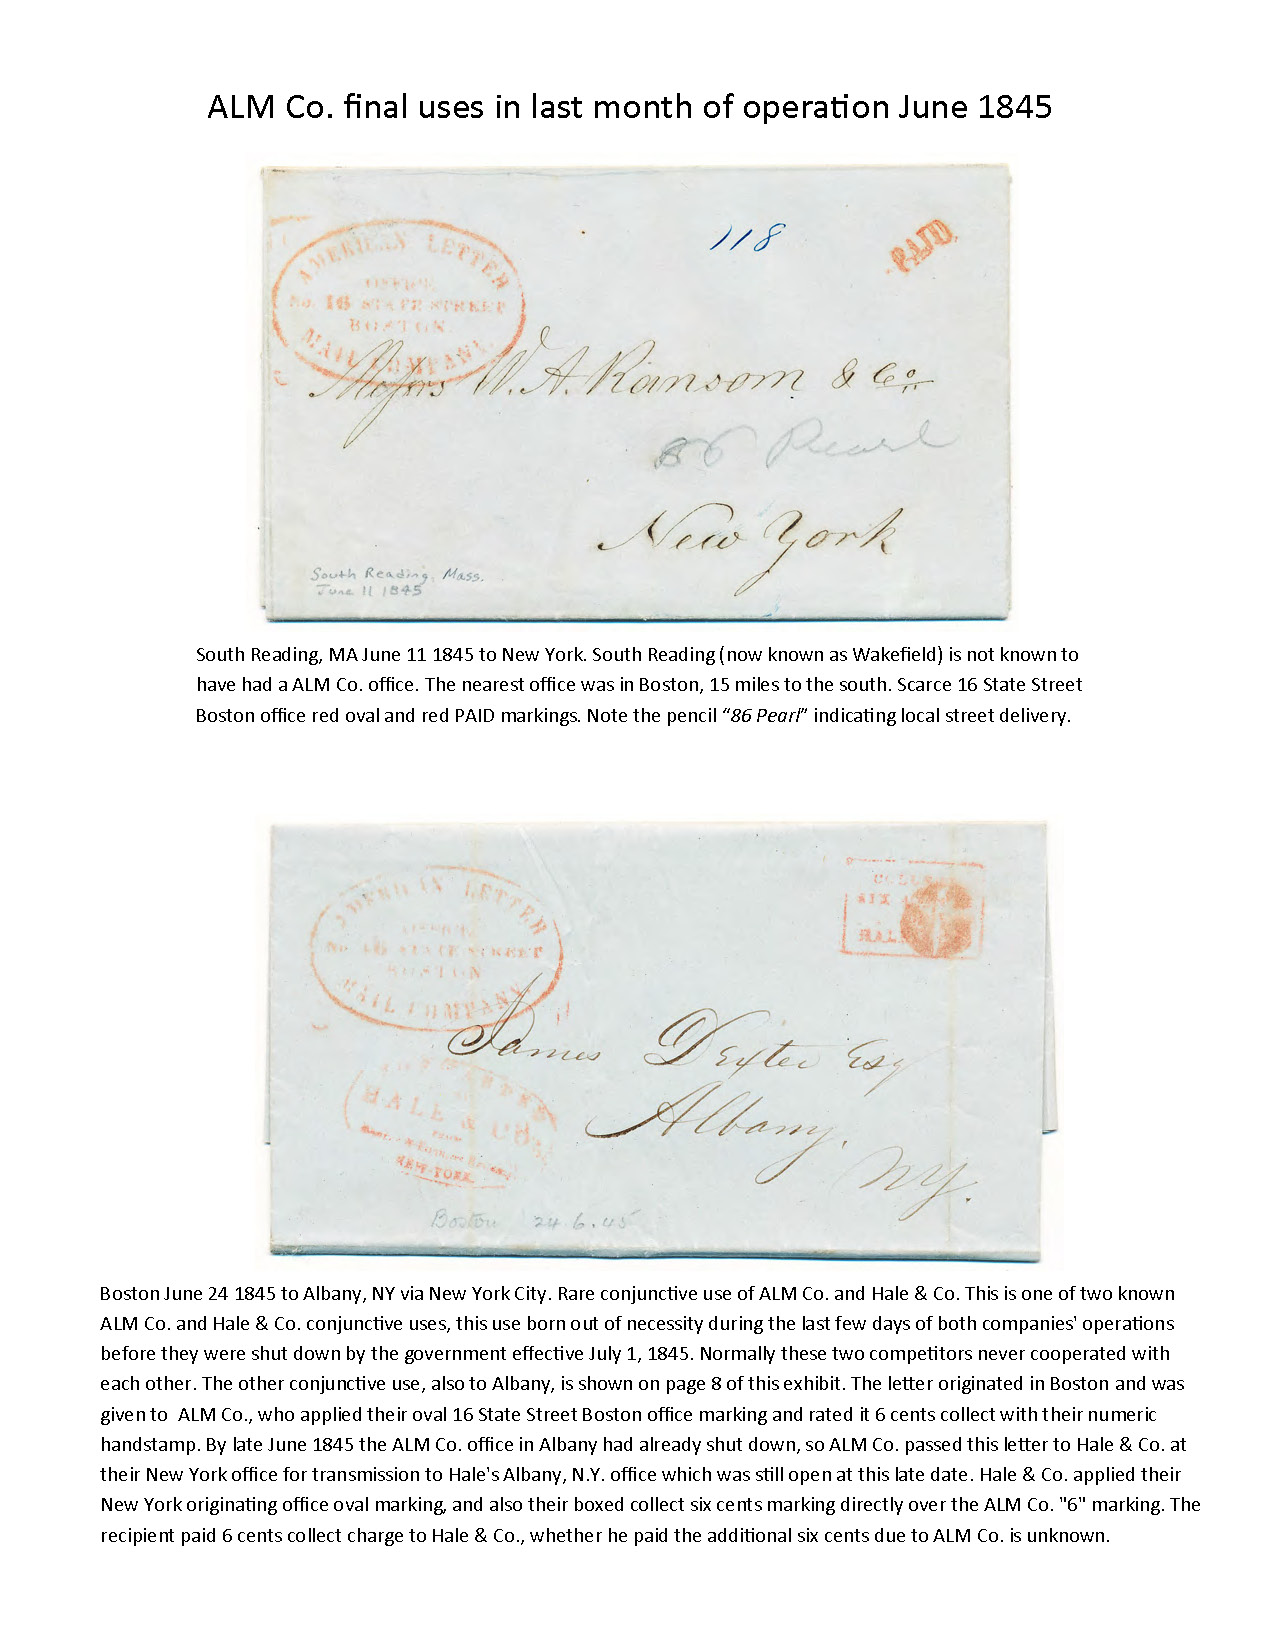 ALM Co. final uses in last month of operation June 1845
AMERICAN LETTER
OFFICE,
No. 16 STATE STREET
BOSTON.
MAIL COMPANY.
118
PAID
Messrs W. A. Ransom & Co.
86 Pearl
New York
South Reading, Mass.
June 11 1845
South Reading, MA June 11 1845 to New York. South Reading (now known as Wakefield) is not known to
have had a ALM Co. office. The nearest office was in Boston, 15 miles to the south. Scarce 16 State Street
Boston office red oval and red PAID markings. Note the pencil “86 Pearl” indicating local street delivery.
AMERICAN LETTER
OFFICE,
No. 16 STATE STREET
BOSTON
MAIL COMPANY.
SIX
HAL
James Dexter Esq
Albany,
NY.
HALE & CO.
FROM
NEW-YORK
Boston 24.6.45
Boston June 24 1845 to Albany, NY via New York City. Rare conjunctive use of ALM Co. and Hale & Co. This is one of two known
ALM Co. and Hale & Co. conjunctive uses, this use born out of necessity during the last few days of both companies' operations
before they were shut down by the government effective July 1, 1845. Normally these two competitors never cooperated with
each other. The other conjunctive use, also to Albany, is shown on page 8 of this exhibit. The letter originated in Boston and was
given to  ALM Co., who applied their oval 16 State Street Boston office marking and rated it 6 cents collect with their numeric
handstamp. By late June 1845 the ALM Co. office in Albany had already shut down, so ALM Co. passed this letter to Hale & Co. at
their New York office for transmission to Hale's Albany, N.Y. office which was still open at this late date. Hale & Co. applied their
New York originating office oval marking, and also their boxed collect six cents marking directly over the ALM Co. "6" marking. The
recipient paid 6 cents collect charge to Hale & Co., whether he paid the additional six cents due to ALM Co. is unknown.